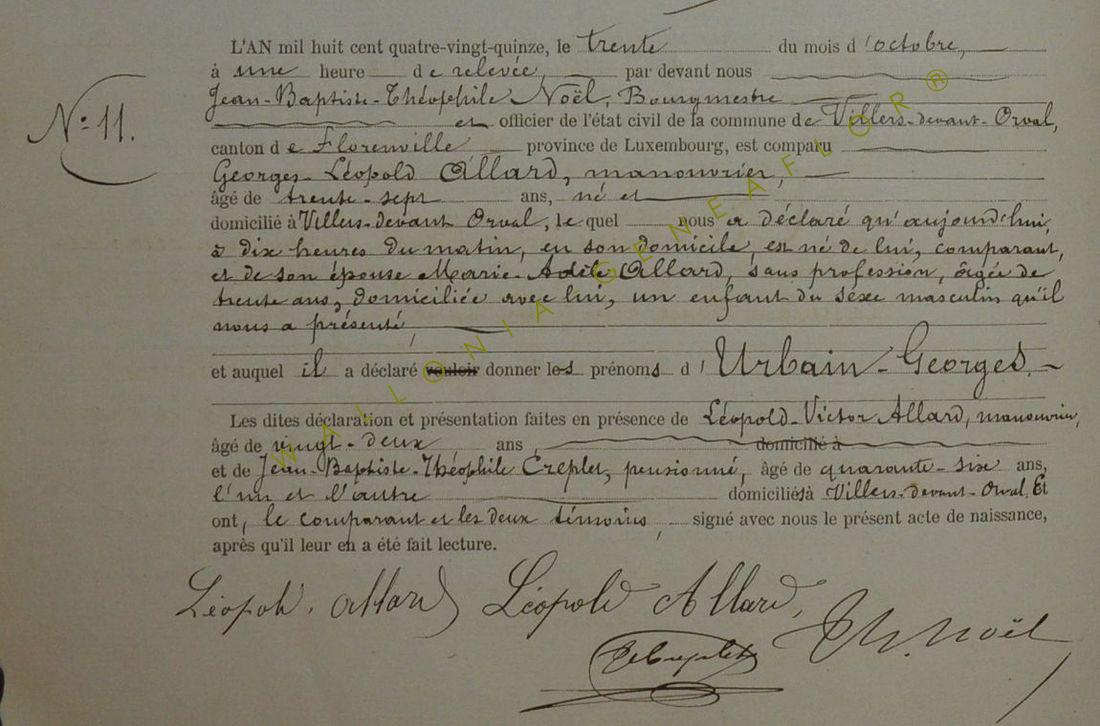 L'AN mil huit cent quatre-vingt-quinze, le trente du mois d'octobre,
à une heure de relevée, par devant nous
N° 11. Jean-Baptiste-Théophile Noël, Bourgmestre
et officier de l'état civil de la commune de Villers-devant-Orval,
canton de Florenville province de Luxembourg, est comparu
Georges-Léopold Allard, manouvrier,
âgé de trente-sept ans, né et
domicilié à Villers-devant Orval, le quel nous a déclaré qu'aujourd'hui,
à dix heures du matin, en son domicile, est né de lui, comparant,
et de son épouse Marie-Adèle Allard, sans profession, âgée de
trente ans, domiciliée avec lui, un enfant du sexe masculin qu'il
nous a présenté,
et auquel il a déclaré vouloir donner les prénoms d'Urbain-Georges.
Les dites déclaration et présentation faites en présence de Léopold-Victor Allard, manouvrier,
âgé de vingt-deux ans domicilié à
et de Jean-Baptiste-Théophile Creplet, pensionné, âgé de quarante-six ans,
l'un et l'autre domiciliés à Villers-devant-Orval. Et
ont, le comparant et les deux témoins, signé avec nous le présent acte de naissance,
après qu'il leur en a été fait lecture.
Léopold. Allard Léopold Allard,
Th. Noël
WALLONIA GENEAFLOR®